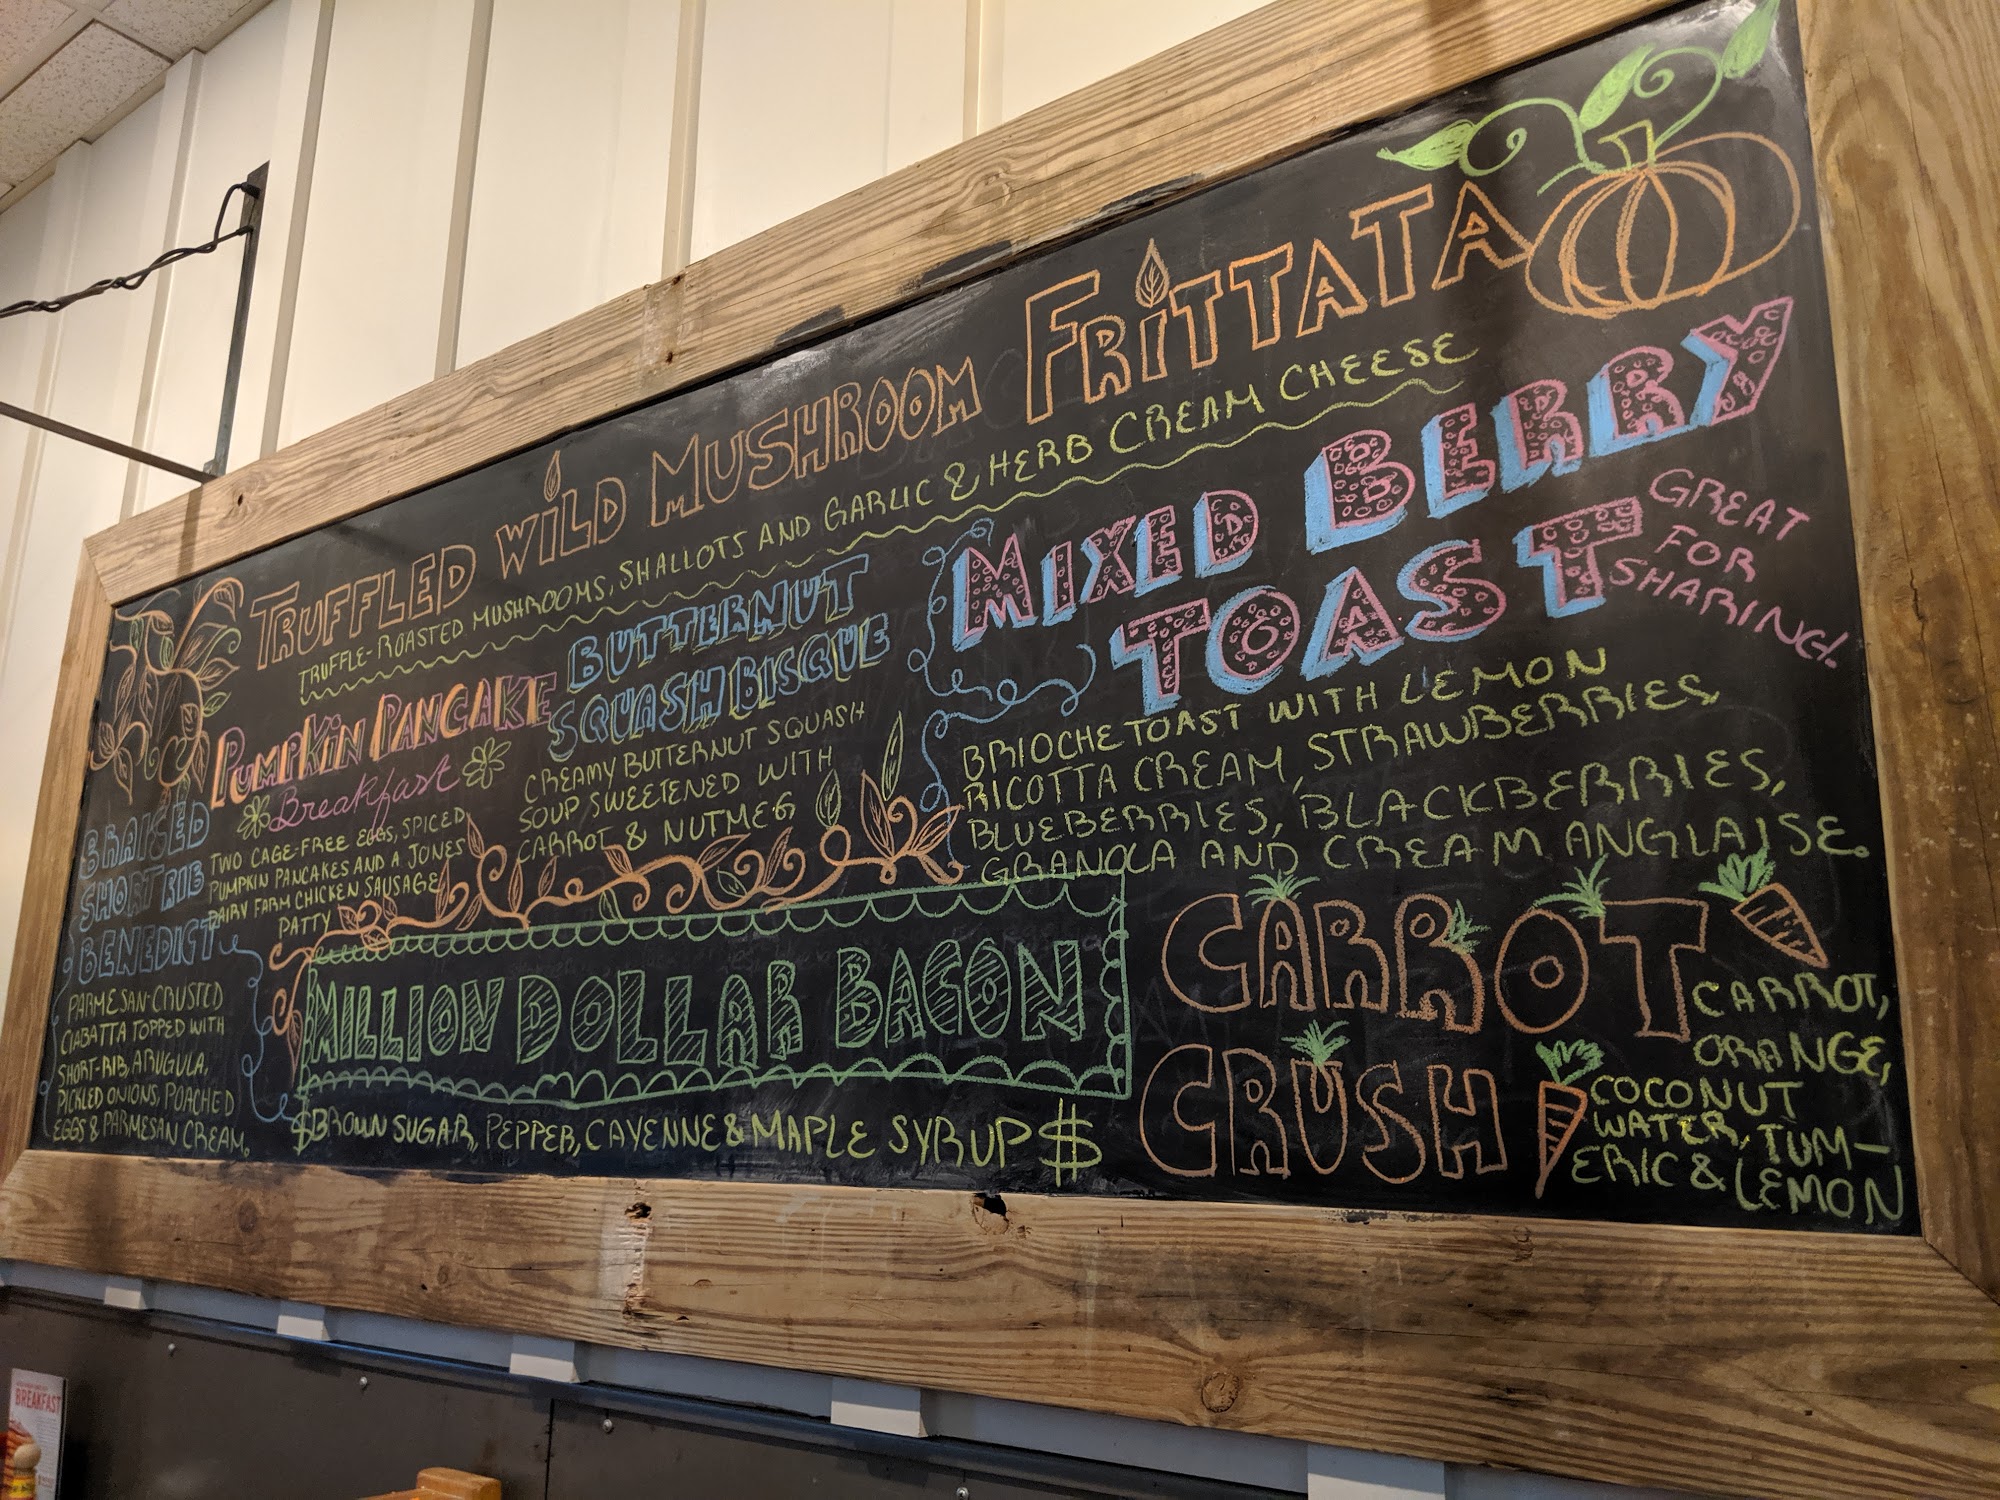 TRUFFLED WILD MUSHROOM FRITTATA
TRUFFLE-ROASTED MUSHROOMS, SHALLOTS AND GARLIC & HERB CREAM CHEESE
PUMPKIN PANCAKE
Breakfast
TWO CAGE-FREE EGGS, SPICED
PUMPKIN PANCAKES AND A JONES
DAIRY FARM CHICKEN SAUSAGE
PATTY
BUTTERNUT
SQUASH BISQUE
CREAMY BUTTERNUT SQUASH
SOUP SWEETENED WITH
CARROT & NUTMEG
MIXED BERRY
TOAST
GREAT
FOR
SHARING!
BRIOCHE TOAST WITH LEMON
RICOTTA CREAM, STRAWBERRIES,
BLUEBERRIES, BLACKBERRIES,
GRANOLA AND CREAM ANGLAISE.
BRAISED
SHORT RIB
BENEDICT
PARMESAN-CRUSTED
CIABATTA TOPPED WITH
SHORT-RIB, ARUGULA,
PICKLED ONIONS, POACHED
EGGS & PARMESAN CREAM.
MILLION DOLLAR BACON
$BROWN SUGAR, PEPPER, CAYENNE & MAPLE SYRUP $
CARROT
CRUSH
CARROT,
ORANGE,
COCONUT
WATER, TUM-
ERIC & LEMON
BREAKFAST